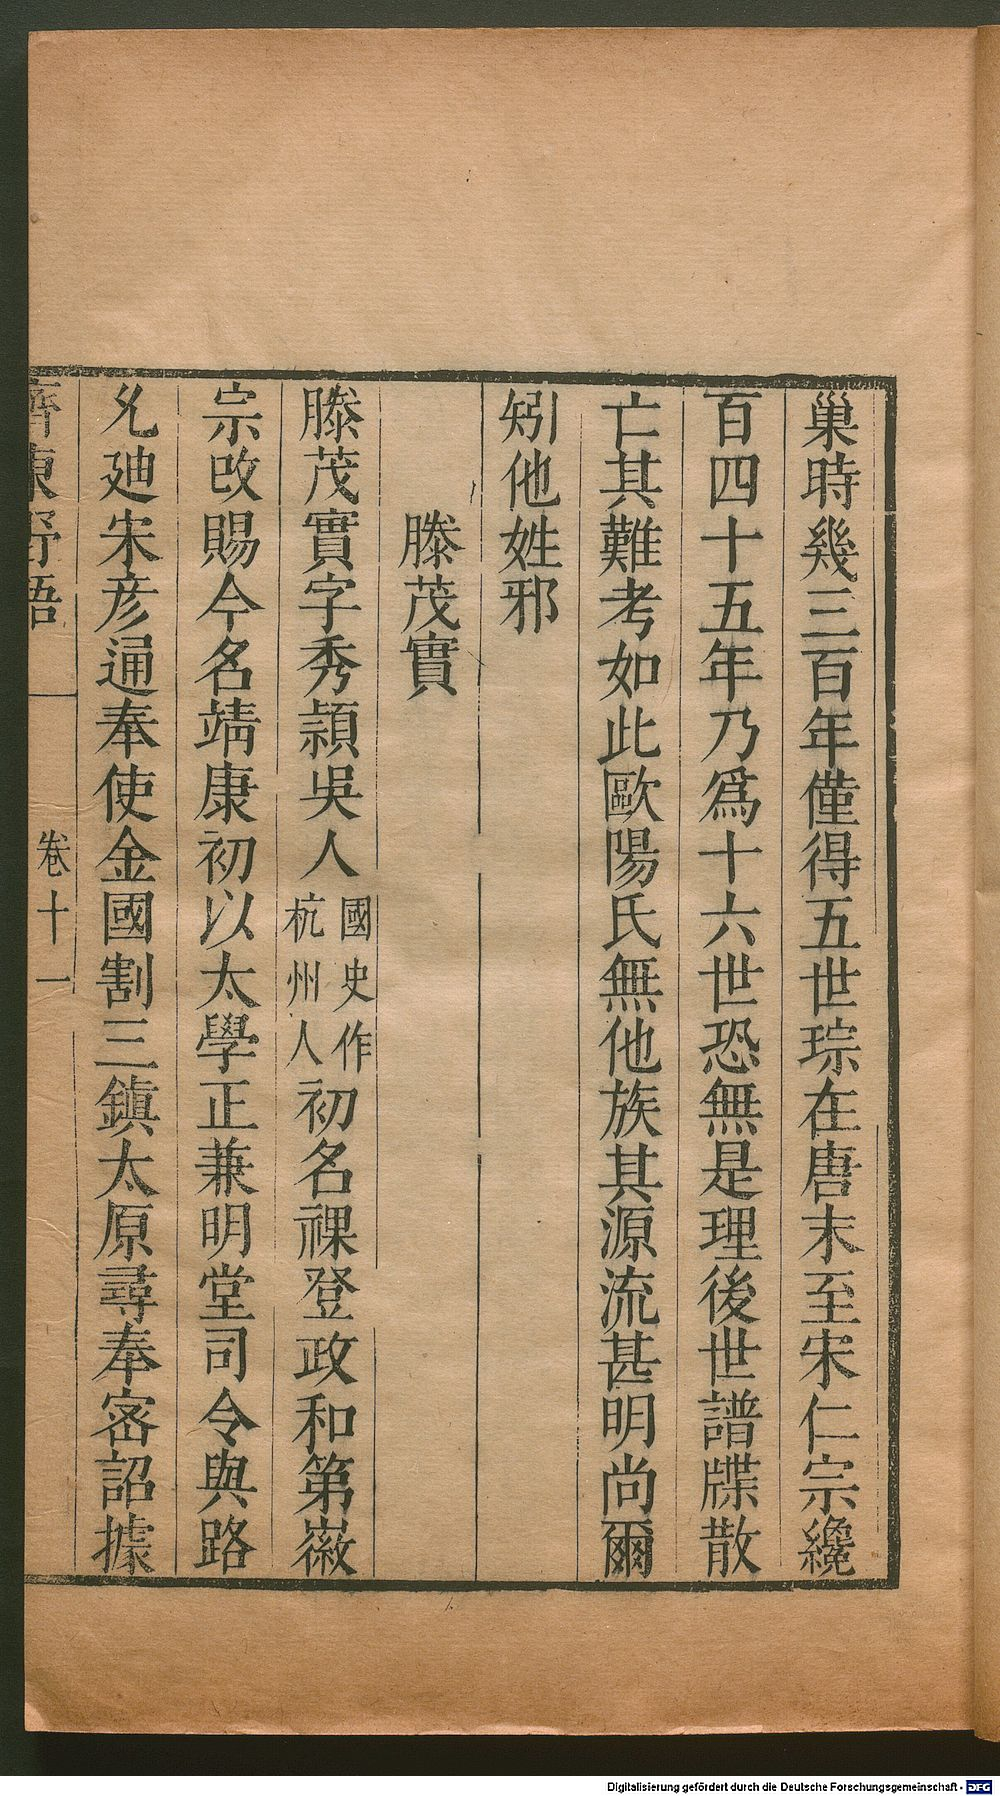 巢時幾三百年僅得五世琮在唐末至宋仁宗纔
百四十五年乃爲十六世恐無是理後世譜牒散
亡其難考如此歐陽氏無他族其源流甚明尚爾
矧他姓邪
滕茂實
滕茂實字秀頴吳人國史作杭州人初名祼登政和第徽
宗改賜今名靖康初以太學正兼明堂司令與路
允廸宋彦通奉使金國割三鎮太原尋奉密詔據
齊東野語
卷十一
Digitalisierung gefördert durch die Deutsche Forschungsgemeinschaft - DFG